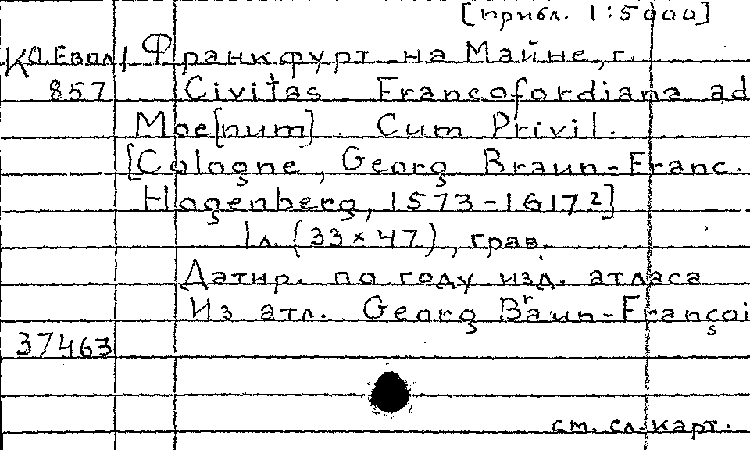 [прибл. 1:5000]
КО Евал/ Франкфурт на Майне, г.
857 Civitas Francofordiana ad
Moe[num]. Cum Privil.
[Cologne, Georg Braun-Franc.
Hogenberg, 1573-1617?]
1 л. (33×47), грав.
Датир. по году изд. атласа
Из атл. Georg Braun-Françoi
37463
см. сл. карт.